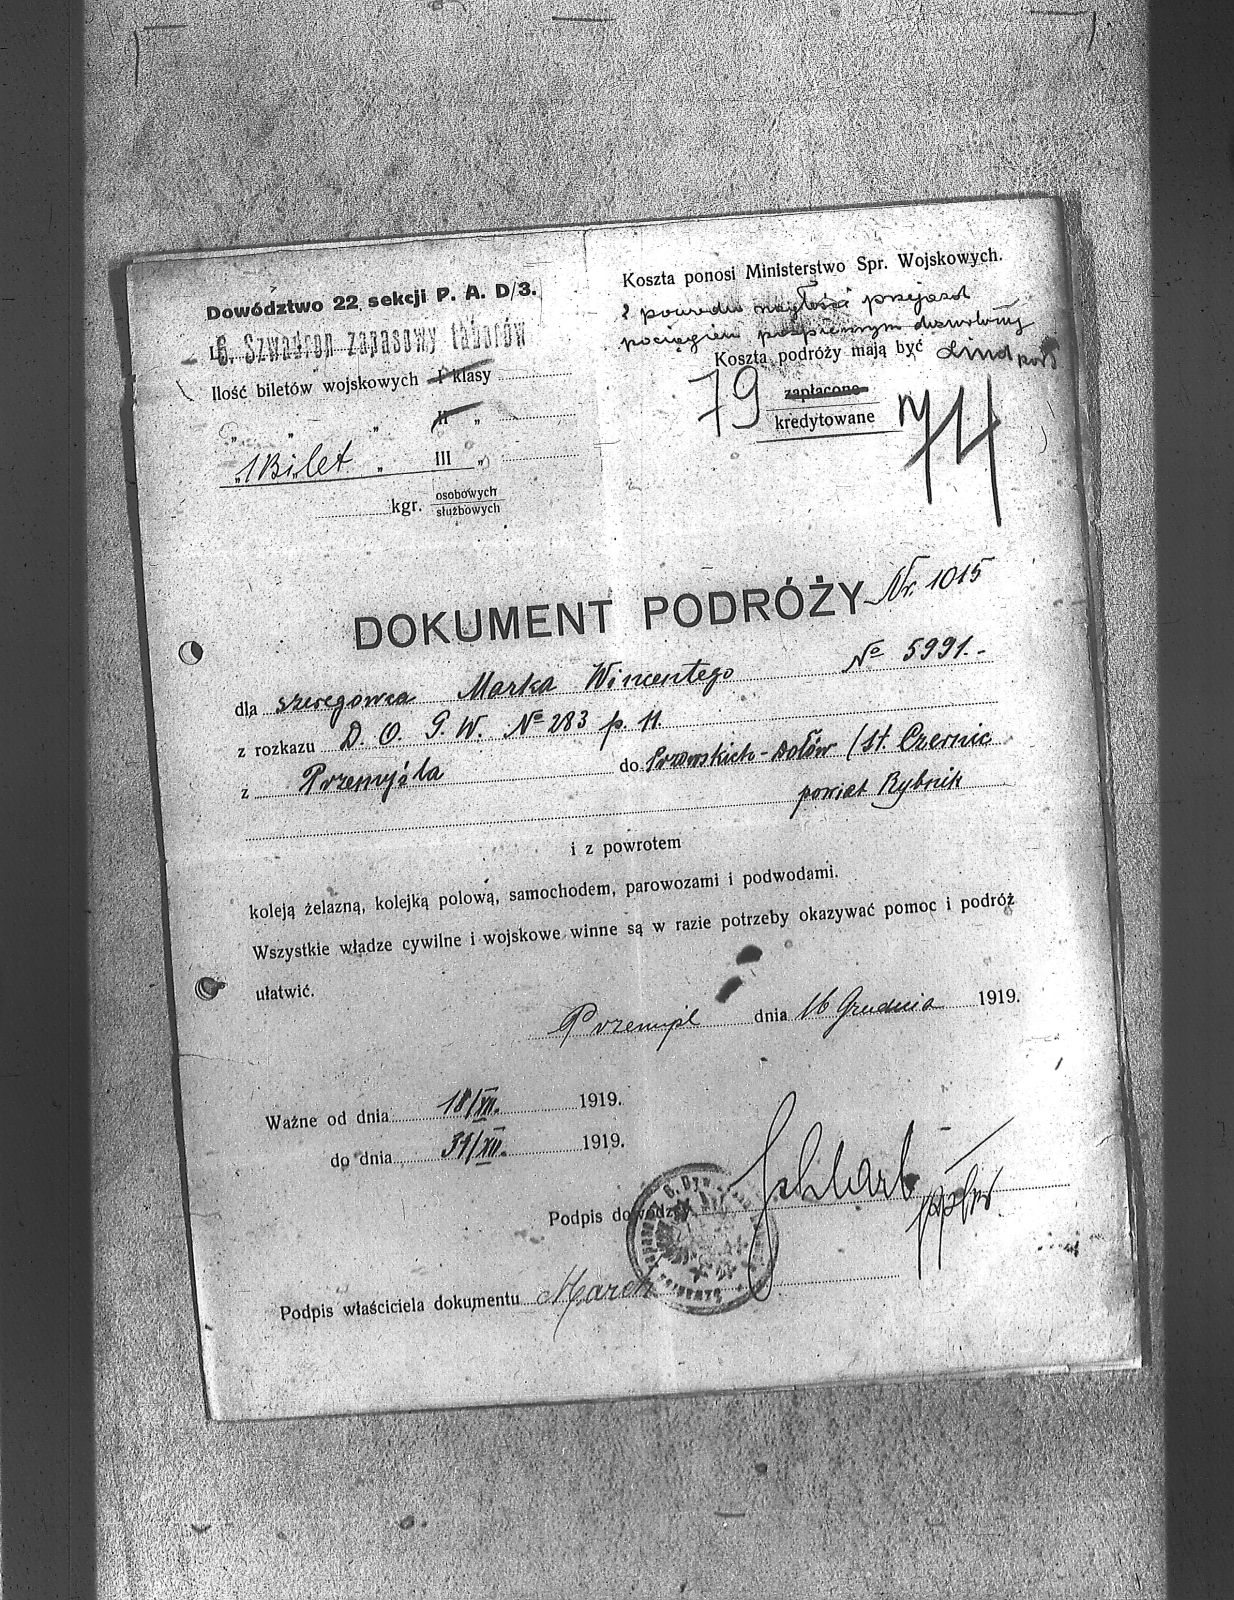 Dowództwo 22 sekcji P. A. D/3.
L. 6. Szwadron zapasowy taborów
Ilość biletów wojskowych I klasy
" " " II "
" 1 Bilet " III "
kgr. osobowych
służbowych
Koszta ponosi Ministerstwo Spr. Wojskowych.
Z powodu nagłości przejazd
pociągiem pospiesznym dozwolony
Koszta podróży mają być
79 zapłacone
kredytowane
DOKUMENT PODRÓŻY Nr. 1015
dla szeregowca Marka Wincentego No 5991.-
z rozkazu D. O. G. W. No 283 p. 11.
z Przemyśla do Dołów (st. Czernic
powiat Rybnik
i z powrotem
koleją żelazną, kolejką polową, samochodem, parowozami i podwodami.
Wszystkie władze cywilne i wojskowe winne są w razie potrzeby okazywać pomoc i podróż
ułatwić.
Przemyśl dnia 16 Grudnia 1919.
Ważne od dnia 18/XII. 1919.
do dnia 31/XII. 1919.
Podpis dowódzy
Podpis właściciela dokumentu Marek